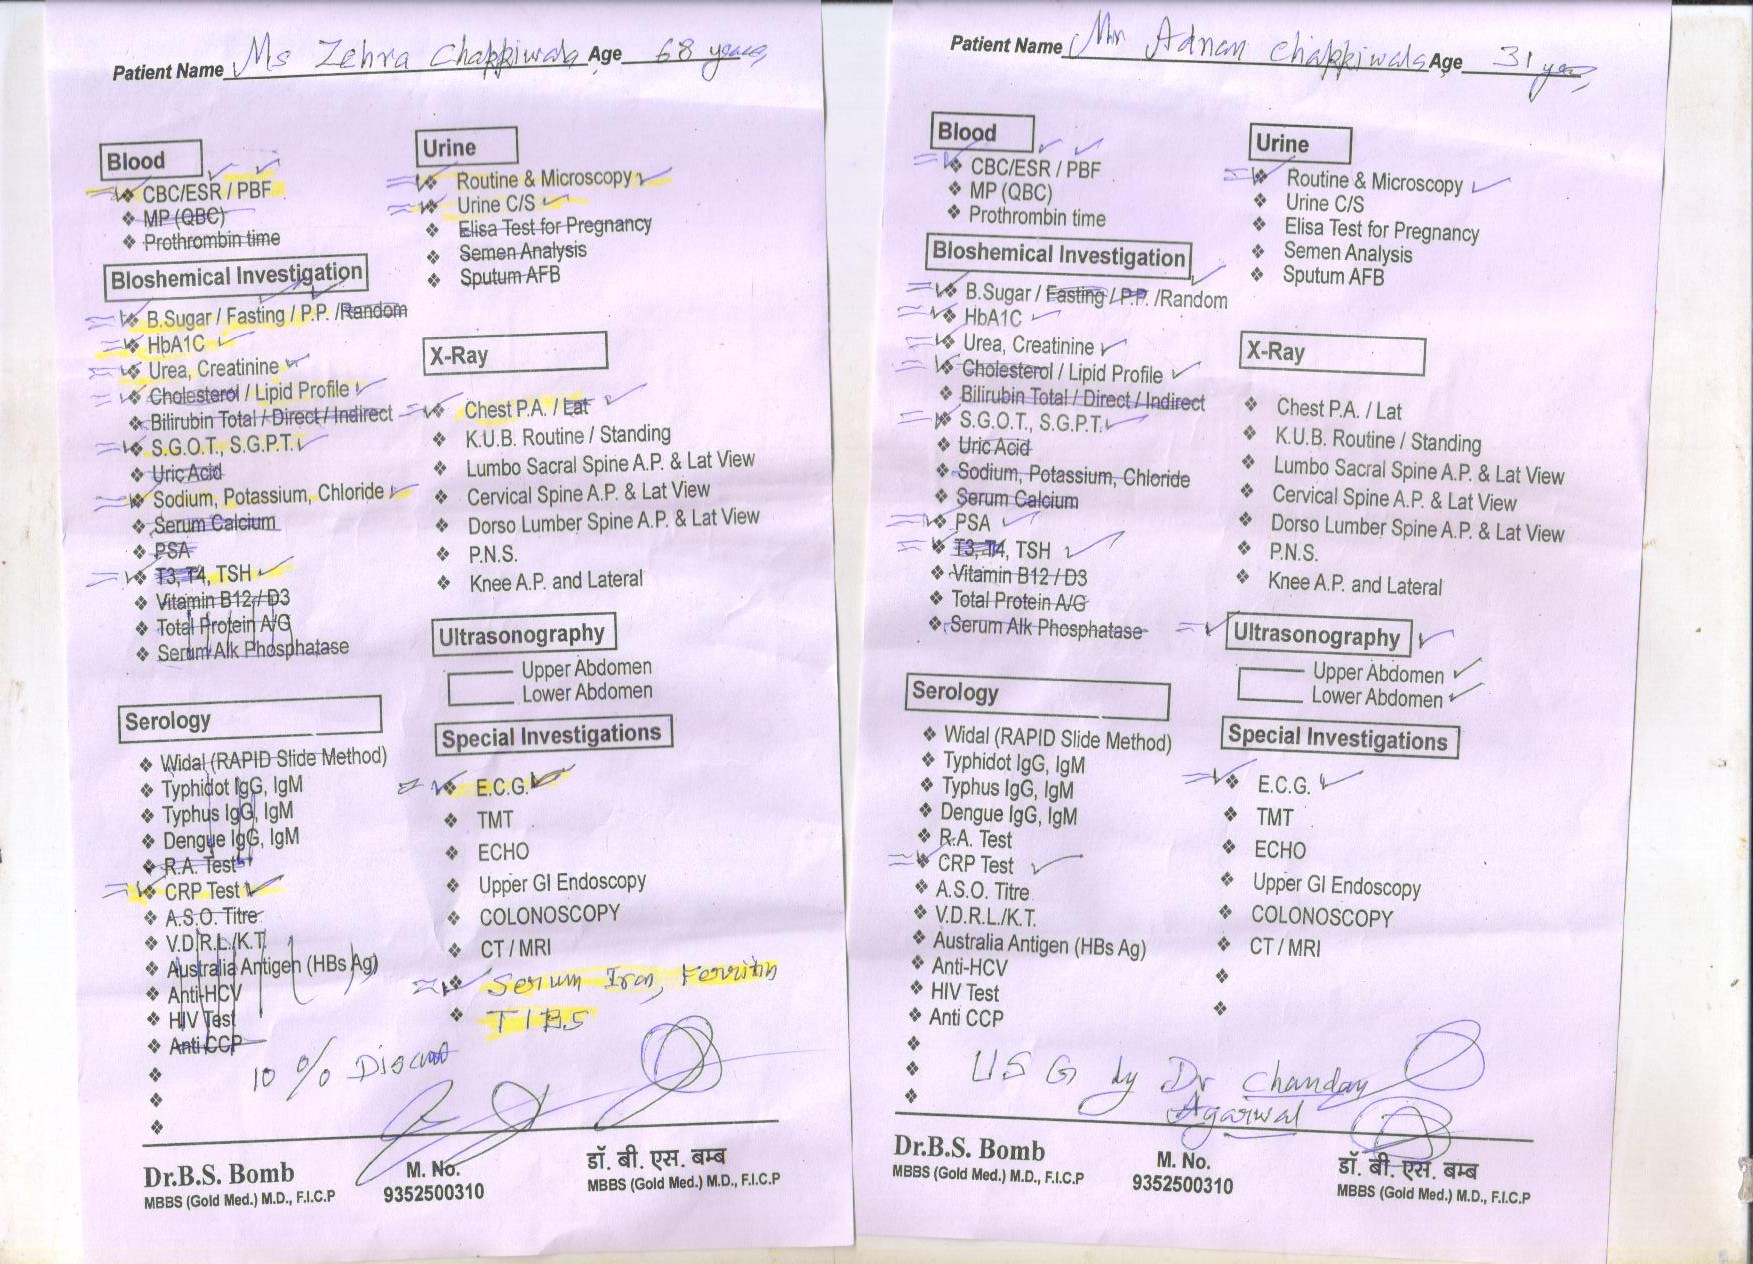 Patient Name Ms Zehra Chakkiwala Age 68 years
Blood
CBC/ESR / PBF
MP (QBC)
Prothrombin time
Bloshemical Investigation
B.Sugar / Fasting / P.P. /Random
HbA1C
Urea, Creatinine
Cholesterol / Lipid Profile
Bilirubin Total / Direct / Indirect
S.G.O.T., S.G.P.T.
Uric Acid
Sodium, Potassium, Chloride
Serum Calcium
PSA
T3, T4, TSH
Vitamin B12 / D3
Total Protein A/G
Serum Alk Phosphatase
Serology
Widal (RAPID Slide Method)
Typhidot IgG, IgM
Typhus IgG, IgM
Dengue IgG, IgM
R.A. Test
CRP Test
A.S.O. Titre
V.D.R.L./K.T.
Australia Antigen (HBs Ag)
Anti-HCV
HIV Test
Anti CCP
10 % Discount
Urine
Routine & Microscopy
Urine C/S
Elisa Test for Pregnancy
Semen Analysis
Sputum AFB
X-Ray
Chest P.A. / Lat
K.U.B. Routine / Standing
Lumbo Sacral Spine A.P. & Lat View
Cervical Spine A.P. & Lat View
Dorso Lumber Spine A.P. & Lat View
P.N.S.
Knee A.P. and Lateral
Ultrasonography
Upper Abdomen
Lower Abdomen
Special Investigations
E.C.G.
TMT
ECHO
Upper GI Endoscopy
COLONOSCOPY
CT / MRI
Serum Iron, Ferritin
TIBS
Dr.B.S. Bomb
MBBS (Gold Med.) M.D., F.I.C.P
M. No.
9352500310
डॉ. बी. एस. बम्ब
MBBS (Gold Med.) M.D., F.I.C.P
Patient Name Mr Adnan Chakkiwala Age 31 years
Blood
CBC/ESR / PBF
MP (QBC)
Prothrombin time
Bloshemical Investigation
B.Sugar / Fasting / P.P. /Random
HbA1C
Urea, Creatinine
Cholesterol / Lipid Profile
Bilirubin Total / Direct / Indirect
S.G.O.T., S.G.P.T.
Uric Acid
Sodium, Potassium, Chloride
Serum Calcium
PSA
T3, T4, TSH
Vitamin B12 / D3
Total Protein A/G
Serum Alk Phosphatase
Serology
Widal (RAPID Slide Method)
Typhidot IgG, IgM
Typhus IgG, IgM
Dengue IgG, IgM
R.A. Test
CRP Test
A.S.O. Titre
V.D.R.L./K.T.
Australia Antigen (HBs Ag)
Anti-HCV
HIV Test
Anti CCP
Urine
Routine & Microscopy
Urine C/S
Elisa Test for Pregnancy
Semen Analysis
Sputum AFB
X-Ray
Chest P.A. / Lat
K.U.B. Routine / Standing
Lumbo Sacral Spine A.P. & Lat View
Cervical Spine A.P. & Lat View
Dorso Lumber Spine A.P. & Lat View
P.N.S.
Knee A.P. and Lateral
Ultrasonography
Upper Abdomen
Lower Abdomen
Special Investigations
E.C.G.
TMT
ECHO
Upper GI Endoscopy
COLONOSCOPY
CT / MRI
USG by Dr Chandan
Agarwal
Dr.B.S. Bomb
MBBS (Gold Med.) M.D., F.I.C.P
M. No.
9352500310
डॉ. बी. एस. बम्ब
MBBS (Gold Med.) M.D., F.I.C.P